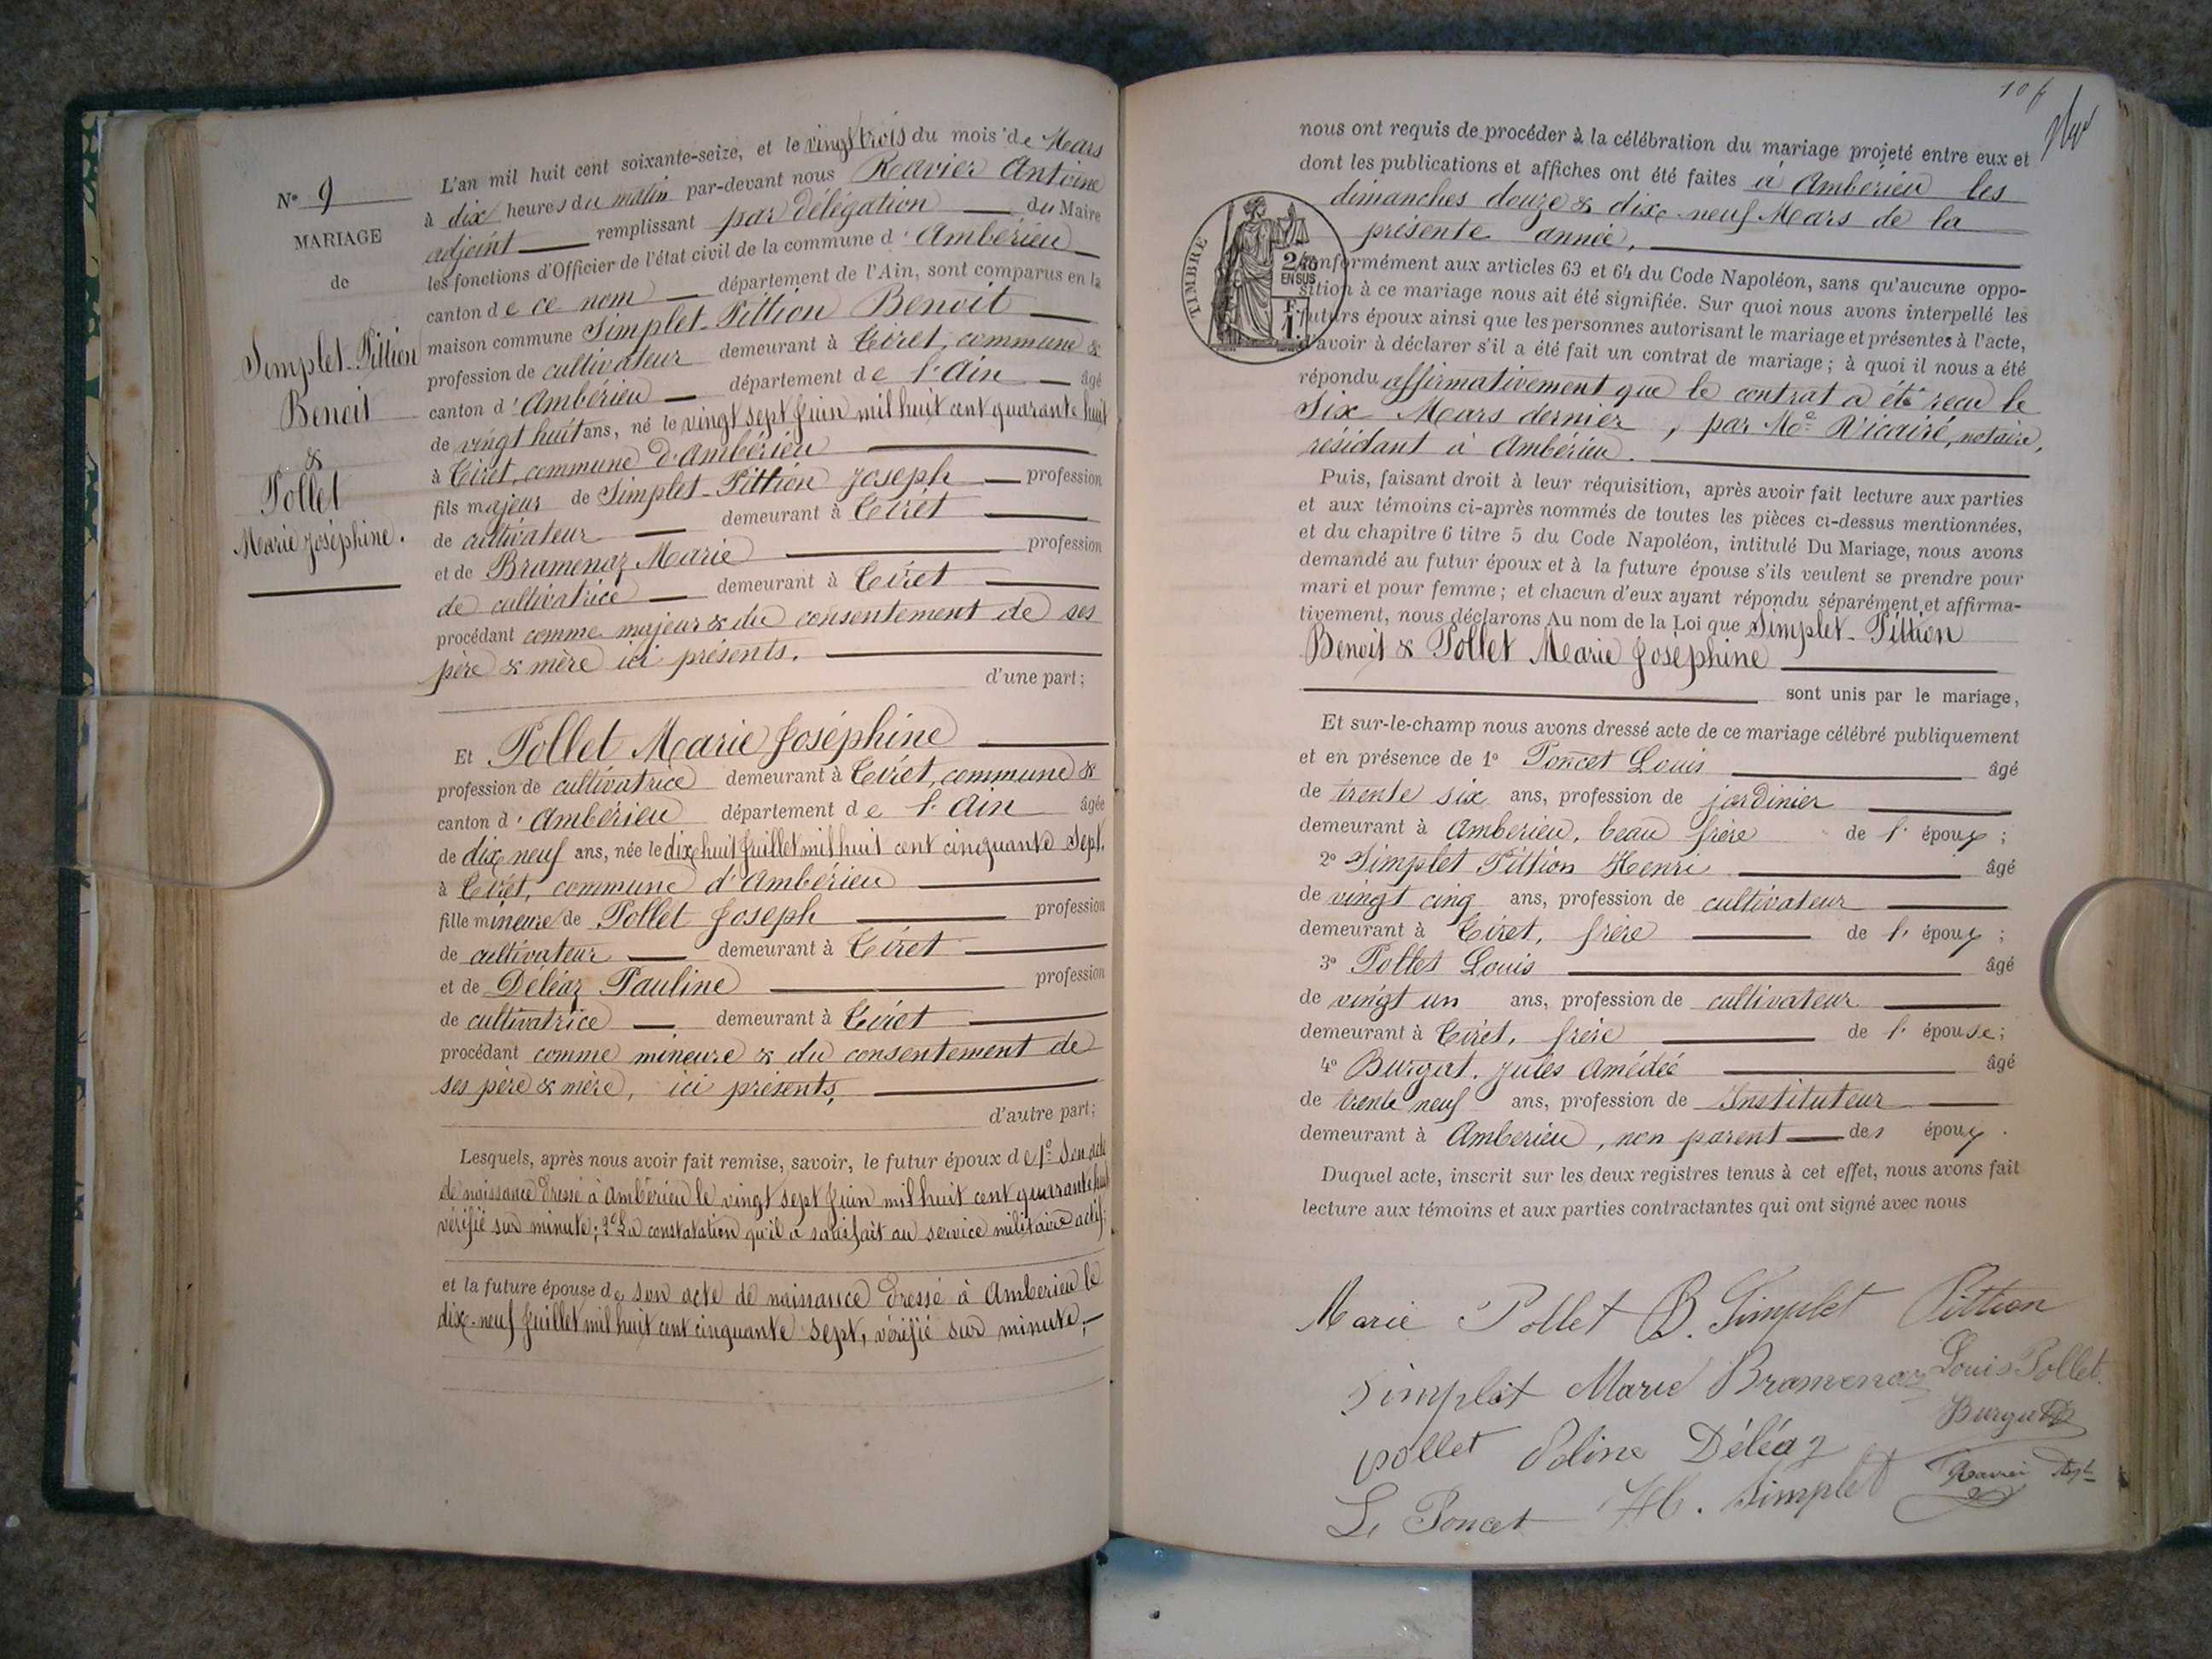 N° 9
MARIAGE
de
Simplet-Pittion
Benoit
&
Pollet
Marie Joséphine.
L'an mil huit cent soixante-seize, et le vingt trois du mois de Mars
à dix heures du matin par-devant nous Ravier Antoine
adjoint remplissant par délégation du Maire
les fonctions d'Officier de l'état civil de la commune d'Ambérieu
canton de ce nom département de l'Ain, sont comparus en la
maison commune Simplet-Pittion Benoit
profession de cultivateur demeurant à Tiret, commune &
canton d'Ambérieu département de l'Ain âgé
de vingt huit ans, né le vingt sept Juin mil huit cent quarante huit
à Tiret, commune d'Ambérieu
fils majeur de Simplet-Pittion Joseph profession
de cultivateur demeurant à Tiret
et de Bramenaz Marie profession
de cultivatrice demeurant à Tiret
procédant comme majeur & du consentement de ses
père & mère ici présents.
d'une part;
Et Pollet Marie Joséphine
profession de cultivatrice demeurant à Tiret, commune &
canton d'Ambérieu département de l'Ain âgée
de dix neuf ans, née le dix huit Juillet mil huit cent cinquante sept.
à Tiret, commune d'Ambérieu
fille mineure de Pollet Joseph profession
de cultivateur demeurant à Tiret
et de Déléaz Pauline profession
de cultivatrice demeurant à Tiret
procédant comme mineure & du consentement de
ses père & mère, ici présents,
d'autre part;
Lesquels, après nous avoir fait remise, savoir, le futur époux de 1° Son acte
de naissance dressé à Ambérieu le vingt sept Juin mil huit cent quarante huit
vérifié sur minute; 2° La constatation qu'il a satisfait au service militaire actif;
et la future épouse de son acte de naissance dressé à Amberieu le
dix-neuf Juillet mil huit cent cinquante sept, vérifié sur minute;
nous ont requis de procéder à la célébration du mariage projeté entre eux et
dont les publications et affiches ont été faites à Ambérieu les
dimanches douze & dix-neuf Mars de la
présente année,
TIMBRE
2/10
EN SUS
F.
1.
conformément aux articles 63 et 64 du Code Napoléon, sans qu'aucune oppo-
sition à ce mariage nous ait été signifiée. Sur quoi nous avons interpellé les
futurs époux ainsi que les personnes autorisant le mariage et présentes à l'acte,
d'avoir à déclarer s'il a été fait un contrat de mariage; à quoi il nous a été
répondu affirmativement que le contrat a été reçu le
Six Mars dernier, par Me Dicairé, notaire,
résidant à Ambérieu.
Puis, faisant droit à leur réquisition, après avoir fait lecture aux parties
et aux témoins ci-après nommés de toutes les pièces ci-dessus mentionnées,
et du chapitre 6 titre 5 du Code Napoléon, intitulé Du Mariage, nous avons
demandé au futur époux et à la future épouse s'ils veulent se prendre pour
mari et pour femme; et chacun d'eux ayant répondu séparément et affirma-
tivement, nous déclarons Au nom de la Loi que Simplet-Pittion
Benoit & Pollet Marie Joséphine
sont unis par le mariage,
Et sur-le-champ nous avons dressé acte de ce mariage célébré publiquement
et en présence de 1° Poncet Louis âgé
de trente six ans, profession de jardinier
demeurant à Amberieu, beau frère de l'époux;
2° Simplet Pittion Henri âgé
de vingt cinq ans, profession de cultivateur
demeurant à Tiret, frère de l'époux;
3° Pollet Louis âgé
de vingt un ans, profession de cultivateur
demeurant à Tiret, frère de l'épouse;
4° Burgat, Jules Amédée âgé
de trente neuf ans, profession de Instituteur
demeurant à Amberieu, non parent des époux.
Duquel acte, inscrit sur les deux registres tenus à cet effet, nous avons fait
lecture aux témoins et aux parties contractantes qui ont signé avec nous
Marie Pollet B. Simplet Pittion
Simplet Marie Bramenaz Louis Pollet.
Burgat
pollet Poline Déléaz
Ravier Adjt
L. Poncet H. Simplet